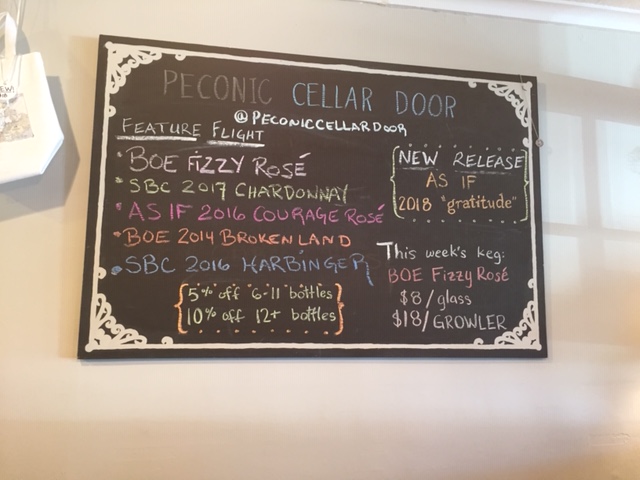 PECONIC CELLAR DOOR
@PECONICCELLARDOOR
FEATURE FLIGHT
• BOE FIZZY ROSÉ
• SBC 2017 CHARDONNAY
• AS IF 2016 COURAGE ROSÉ
• BOE 2014 BROKENLAND
• SBC 2016 HARBINGER
5% off 6-11 bottles
10% off 12+ bottles
NEW RELEASE
AS IF
2018 "gratitude"
This week's keg:
BOE Fizzy Rosé
$8/glass
$18/GROWLER